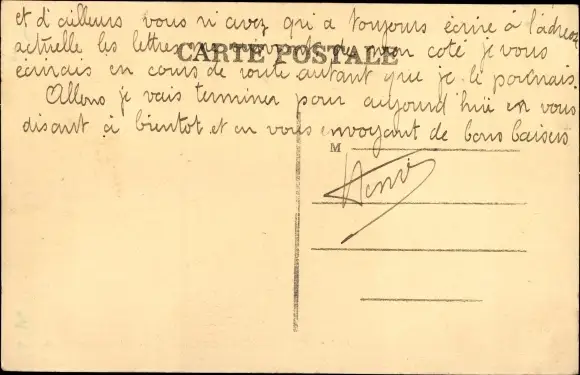 et d'ailleurs vous n'avez qu'a toujours écrire à l'adresse
actuelle les lettres me suivront de mon coté je vous
CARTE POSTALE
écrirais en cours de route autant que je le pourrais.
Allons je vais terminer pour aujourd'hui en vous
disant à bientot et en vous envoyant de bons baisers
M
Henri